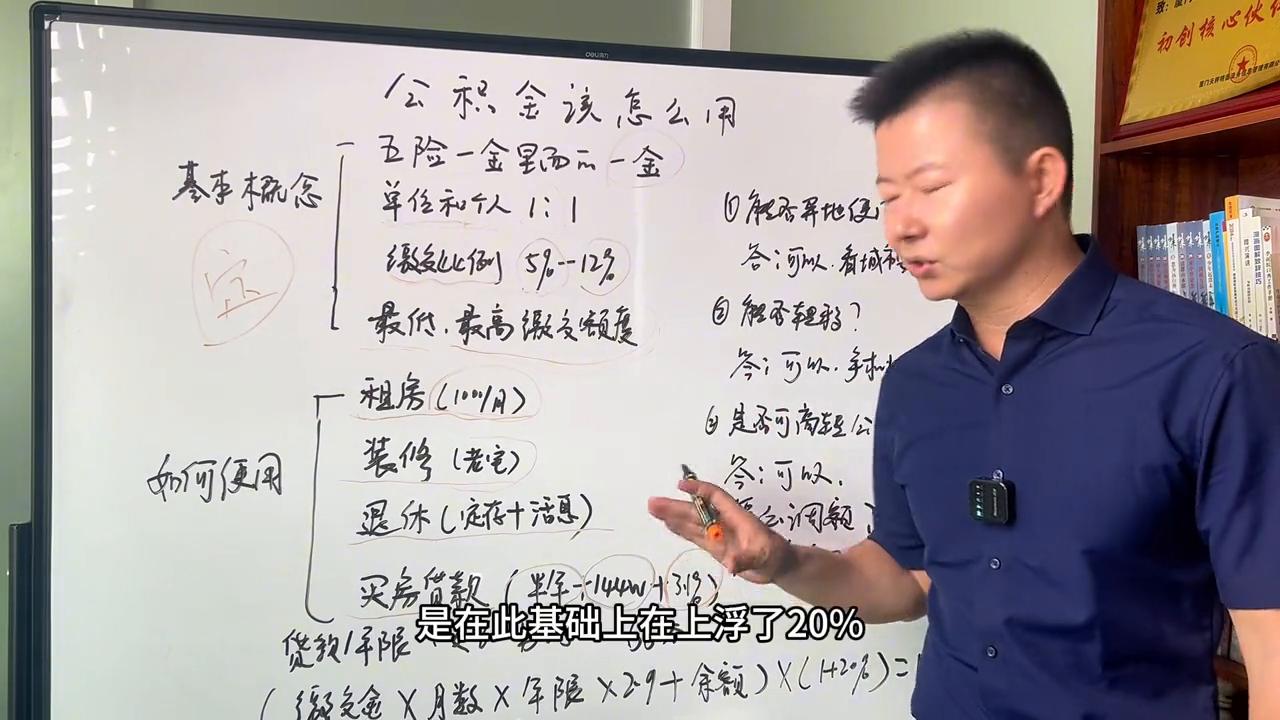 deli得力
公积金该怎么用
五险一金里面的一金
基本概念
单位和个人 1:1
缴交比例 5%--12%
定
最低.最高缴交额度
租房(1000/月)
装修(老宅)
如何使用
退休(定存+活息)
买房贷款(半年--144W+3.1%)
贷款年限
(缴交金×月数×年限×2.9+余额)×(1+20%)=
①能否异地使
答:可以.看城市
②能否转移?
答:可以.手
③是否可商转公
答:可以.
是在此基础上在上浮了20%
初创核心伙